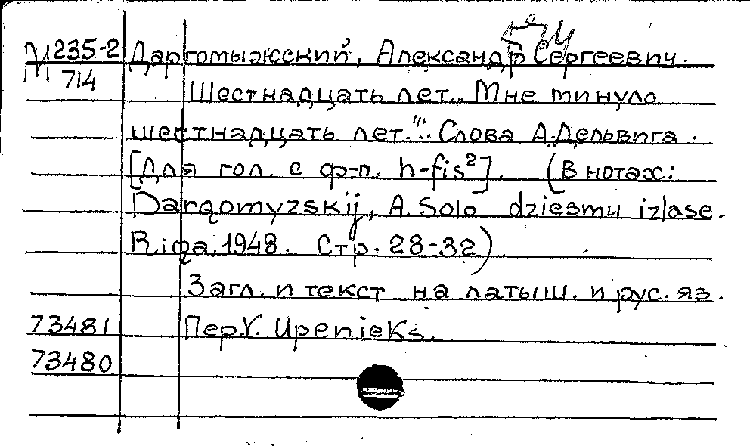 М 235-2 Даргомыжский, Александр Сергеевич.
714 Шестнадцать лет. „Мне минуло
шестнадцать лет..." Слова А.Дельвига.
[Для гол. с ф-п. h-fis²]. (В нотах:
Dargomyzskij, A. Solo dziesmu izlase.
Riga. 1948. Стр. 28-32)
Загл. и текст на латыш. и рус. яз.
73481 Пер. V. Upenieks.
73480